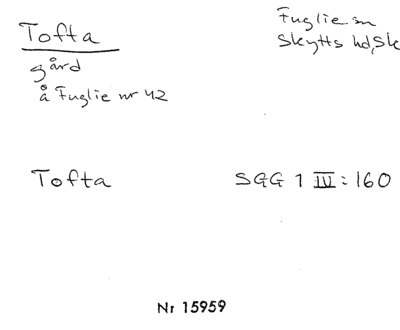 Tofta
gård
å Fuglie nr 42
Fuglie sn
Skytts hd, Sk
Tofta
SGG 1 IV:160
Nr 15959